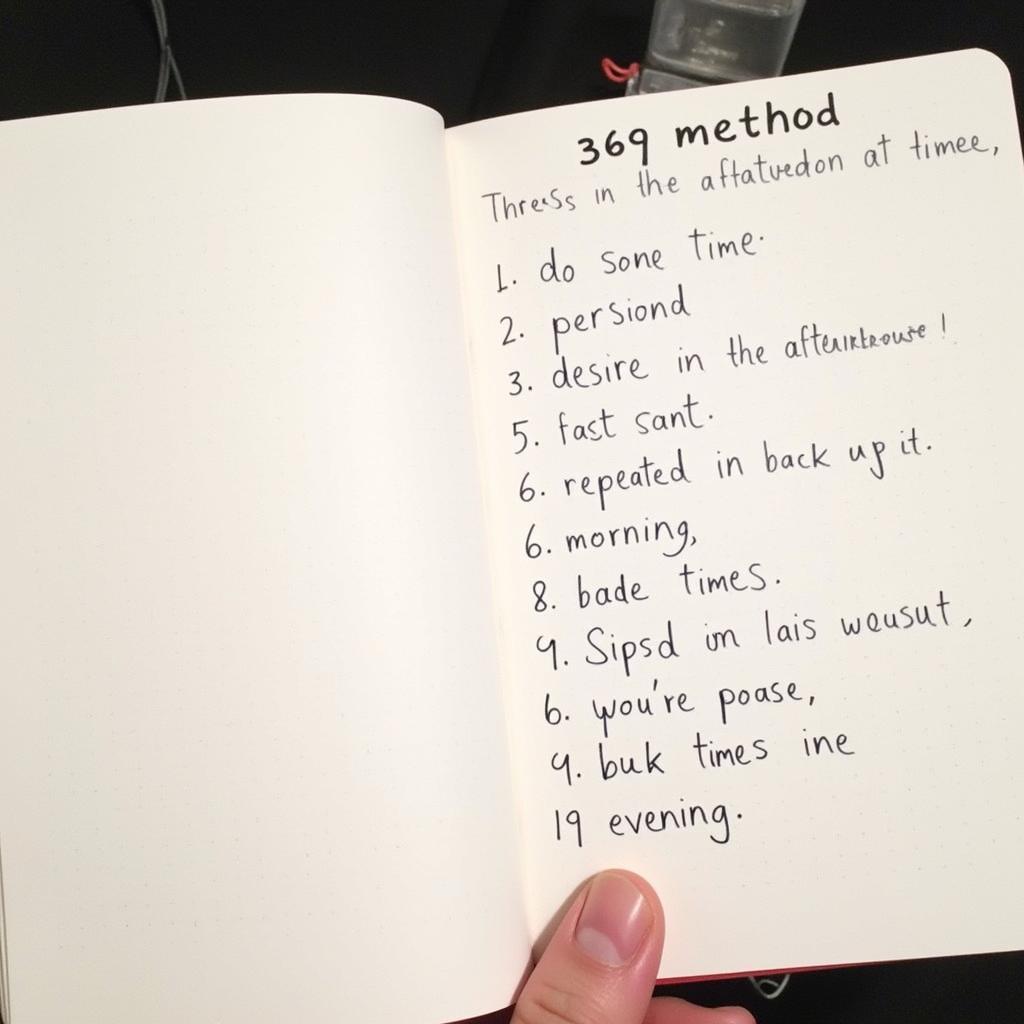 369 method
in the aftatvedon at timee,
1. do sone time.
2. persiond
3. desire in the !
5. fast sant.
6. repeated in back up it.
6. morning,
8. bade times.
9. Sipsd in lais wousut,
6. you're poase,
9. buk times ine
19 evening.